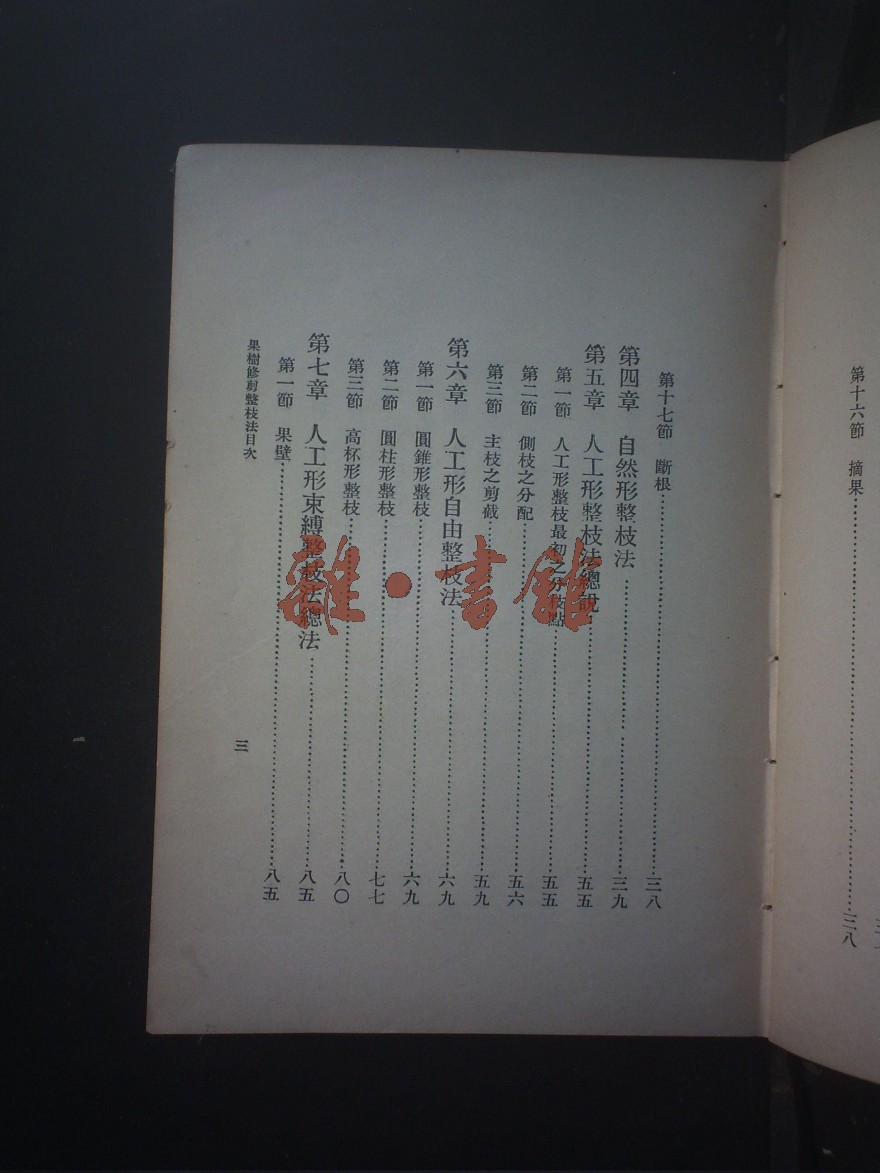 第十六節　摘果……三八
第十七節　斷根……三八
第四章　自然形整枝法……三九
第五章　人工形整枝法總說……五五
第一節　人工形整枝最初之分枝點……五五
第二節　側枝之分配……五六
第三節　主枝之剪截……五九
第六章　人工形自由整枝法……六九
第一節　圓錐形整枝……六九
第二節　圓柱形整枝……七七
第三節　高杯形整枝……八〇
第七章　人工形束縛整枝法總法……八五
第一節　果壁……八五
果樹修剪整枝法目次
三
雜·書館